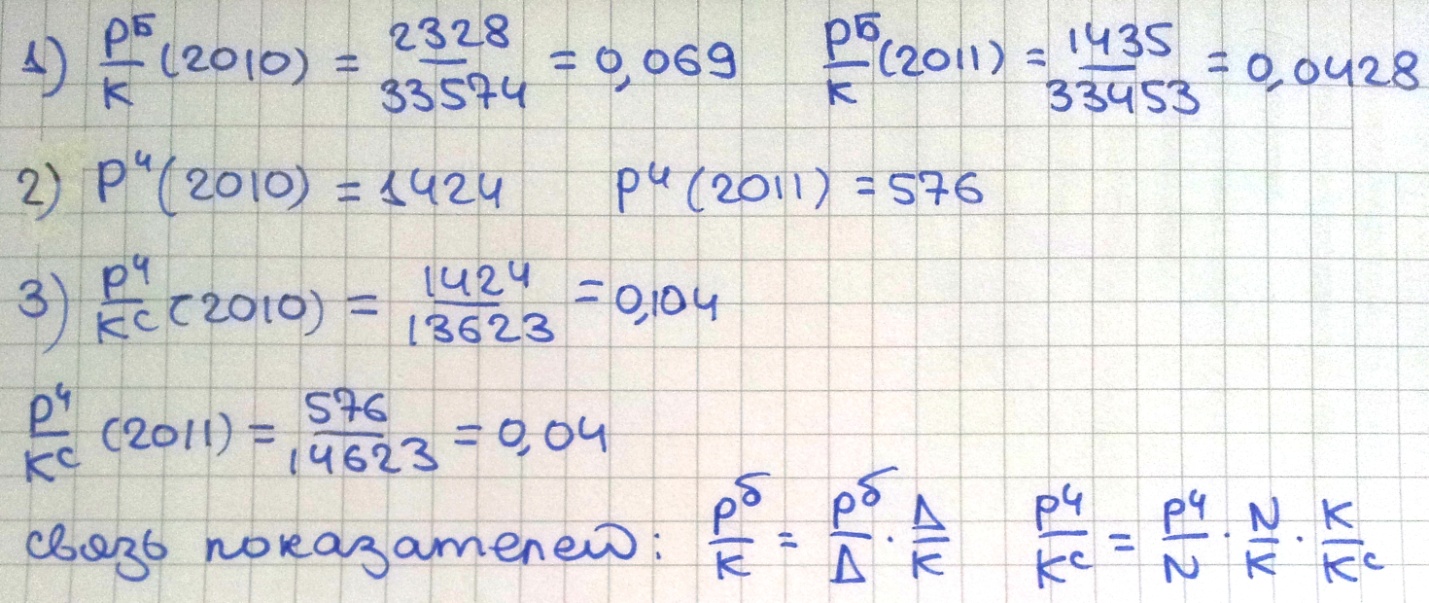 1) P^Б/К (2010) = 2328/33574 = 0,069 P^Б/К (2011) = 1435/33453 = 0,0428
2) P^ч (2010) = 1424 P^ч (2011) = 576
3) P^ч/К^с (2010) = 1424/13623 = 0,104
P^ч/К^с (2011) = 576/14623 = 0,04
связь показателей: P^б/К = P^б/Δ · Δ/К P^ч/К^с = P^ч/N · N/К · К/К^с